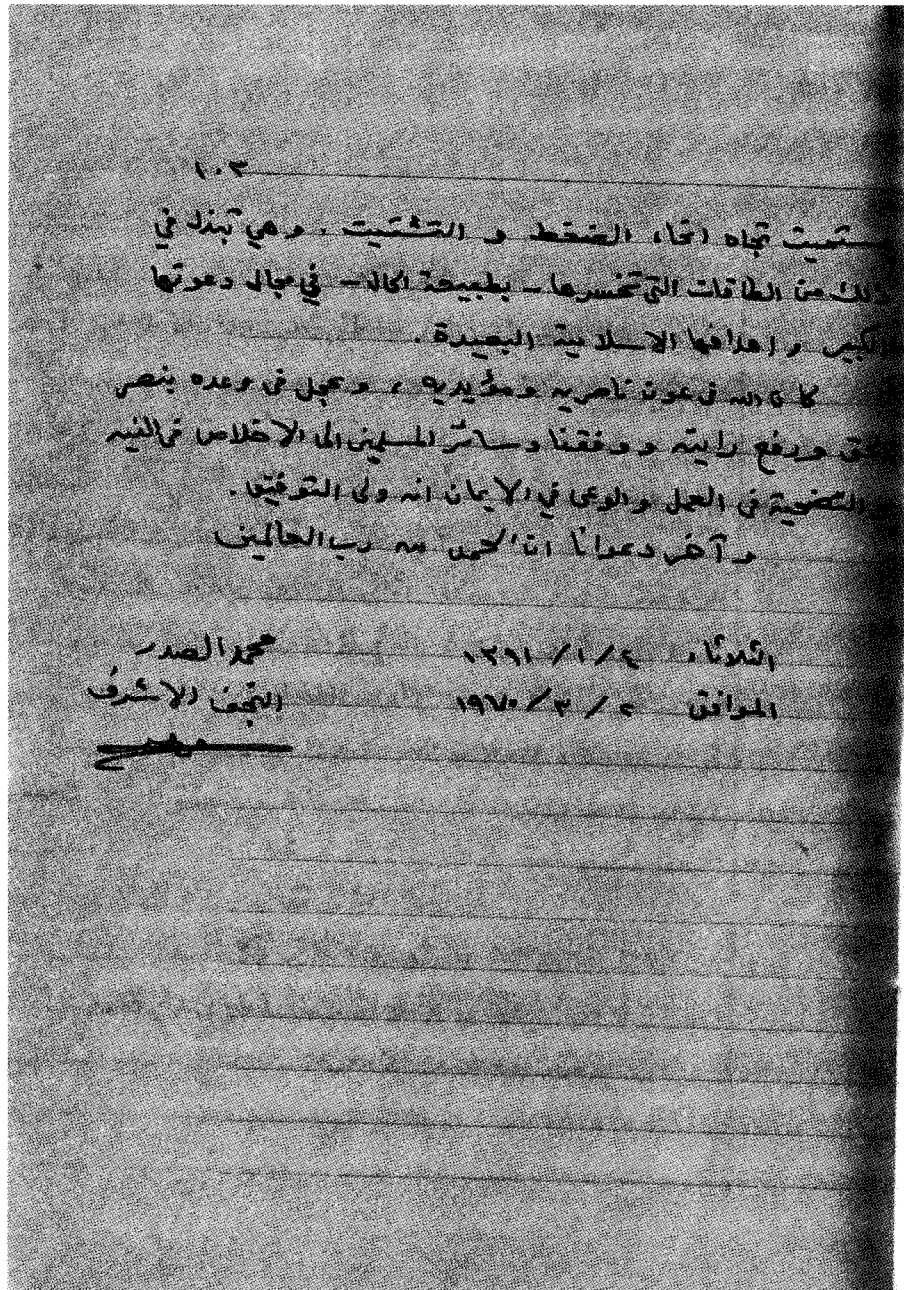 ١٠٣
مستميت تجاه انحاء الضغط و التشتيت . و هي تبذل في
ذلك من الطاقات التي تخسرها - بطبيعة الحال - في مجال دعوتها
الكبير و اهدافها الاسلامية البعيدة .
كان الله في عون ناصريه و مؤيديه ، و عجل في وعده بنصر
الحق و رفع رايته و وفقنا و سائر المسلمين الى الاخلاص في النيه
و التضحية في العمل و الوعي في الايمان انه ولي التوفيق .
و آخر دعوانا ان الحمد لله رب العالمين
الثلاثاء ٤ / ١ / ١٣٩١ محمد الصدر
الموافق ٢ / ٣ / ١٩٧٠ النجف الاشرف